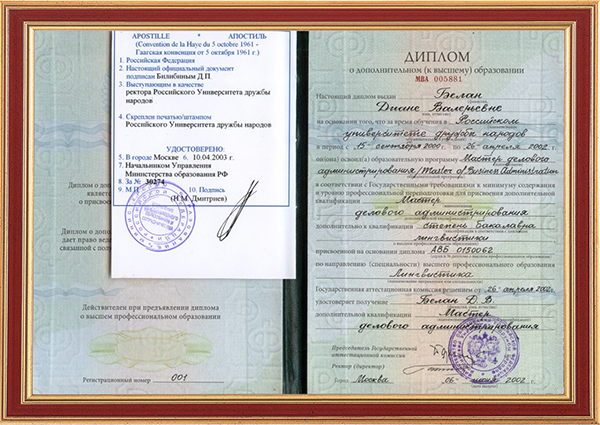 APOSTILLE * АПОСТИЛЬ
(Convention de la Haye du 5 octobre 1961 -
Гаагская конвенция от 5 октября 1961 г.)
1. Российская Федерация
2. Настоящий официальный документ
подписан Билибиным Д.П.
3. Выступающим в качестве
ректора Российского Университета дружбы
народов
4. Скреплен печатью/штампом
Российского Университета дружбы народов
УДОСТОВЕРЕНО:
5. В городе Москве 6. 10.04.2003 г.
7. Начальником Управления
Министерства образования РФ
8. За № 30274
9. М.П. 10. Подпись
(Н.М. Дмитриев)
Диплом о допол
о высшем
о присвое
Диплом о
дает право ве
связанной с полу
Действителен при предъявлении диплома
о высшем профессиональном образовании
Регистрационный номер 001
ДИПЛОМ
о дополнительном (к высшему) образовании
МВА 005881
Настоящий диплом выдан Белан
Диане Валерьевне
на основании того, что за время обучения в Российском
университете дружбы народов
в период с 15 сентября 2000 г. по 26 апреля 2002 г.
освоил(а) образовательную программу Мастер делового
администрирования, Master of Business Administration
в соответствии с Государственными требованиями к минимуму содержания
и уровню профессиональной переподготовки для присвоения дополнительной
квалификации Мастер
делового администрирования
в дополнение к квалификации степень бакалавра
лингвистики
присвоенной на основании диплома АВБ 0130062
по направлению (специальности) высшего профессионального образования
Лингвистика
Государственная аттестационная комиссия решением от 26 апреля 2002 г.
удостоверяет получение Белан Д.В.
дополнительной квалификации Мастер
делового администрирования
Председатель Государственной
аттестационной комиссии
Ректор (директор)
Город Москва 06 июня 2002 г.